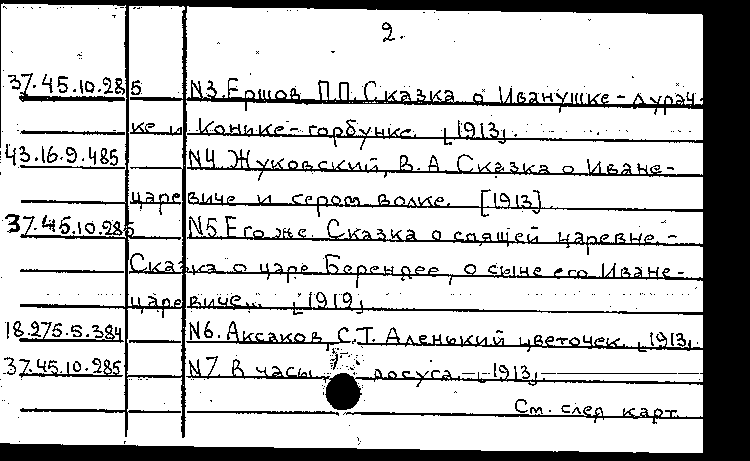 2.
37.45.10.285 N3. Ершов П.П. Сказка о Иванушке-дурач-
ке и Конике-горбунке. [1913].
43.16.9.485 N4. Жуковский, В.А. Сказка о Иване-
царевиче и сером волке. [1913].
37.45.10.285 N5. Его же. Сказка о спящей царевне.-
Сказка о царе Берендее, о сыне его Иване-
царевиче... [1919]
18.275.5.384 N6. Аксаков, С.Т. Аленький цветочек. [1913].
37.45.10.285 N7. В часы досуга. - [1913]
См. след карт.